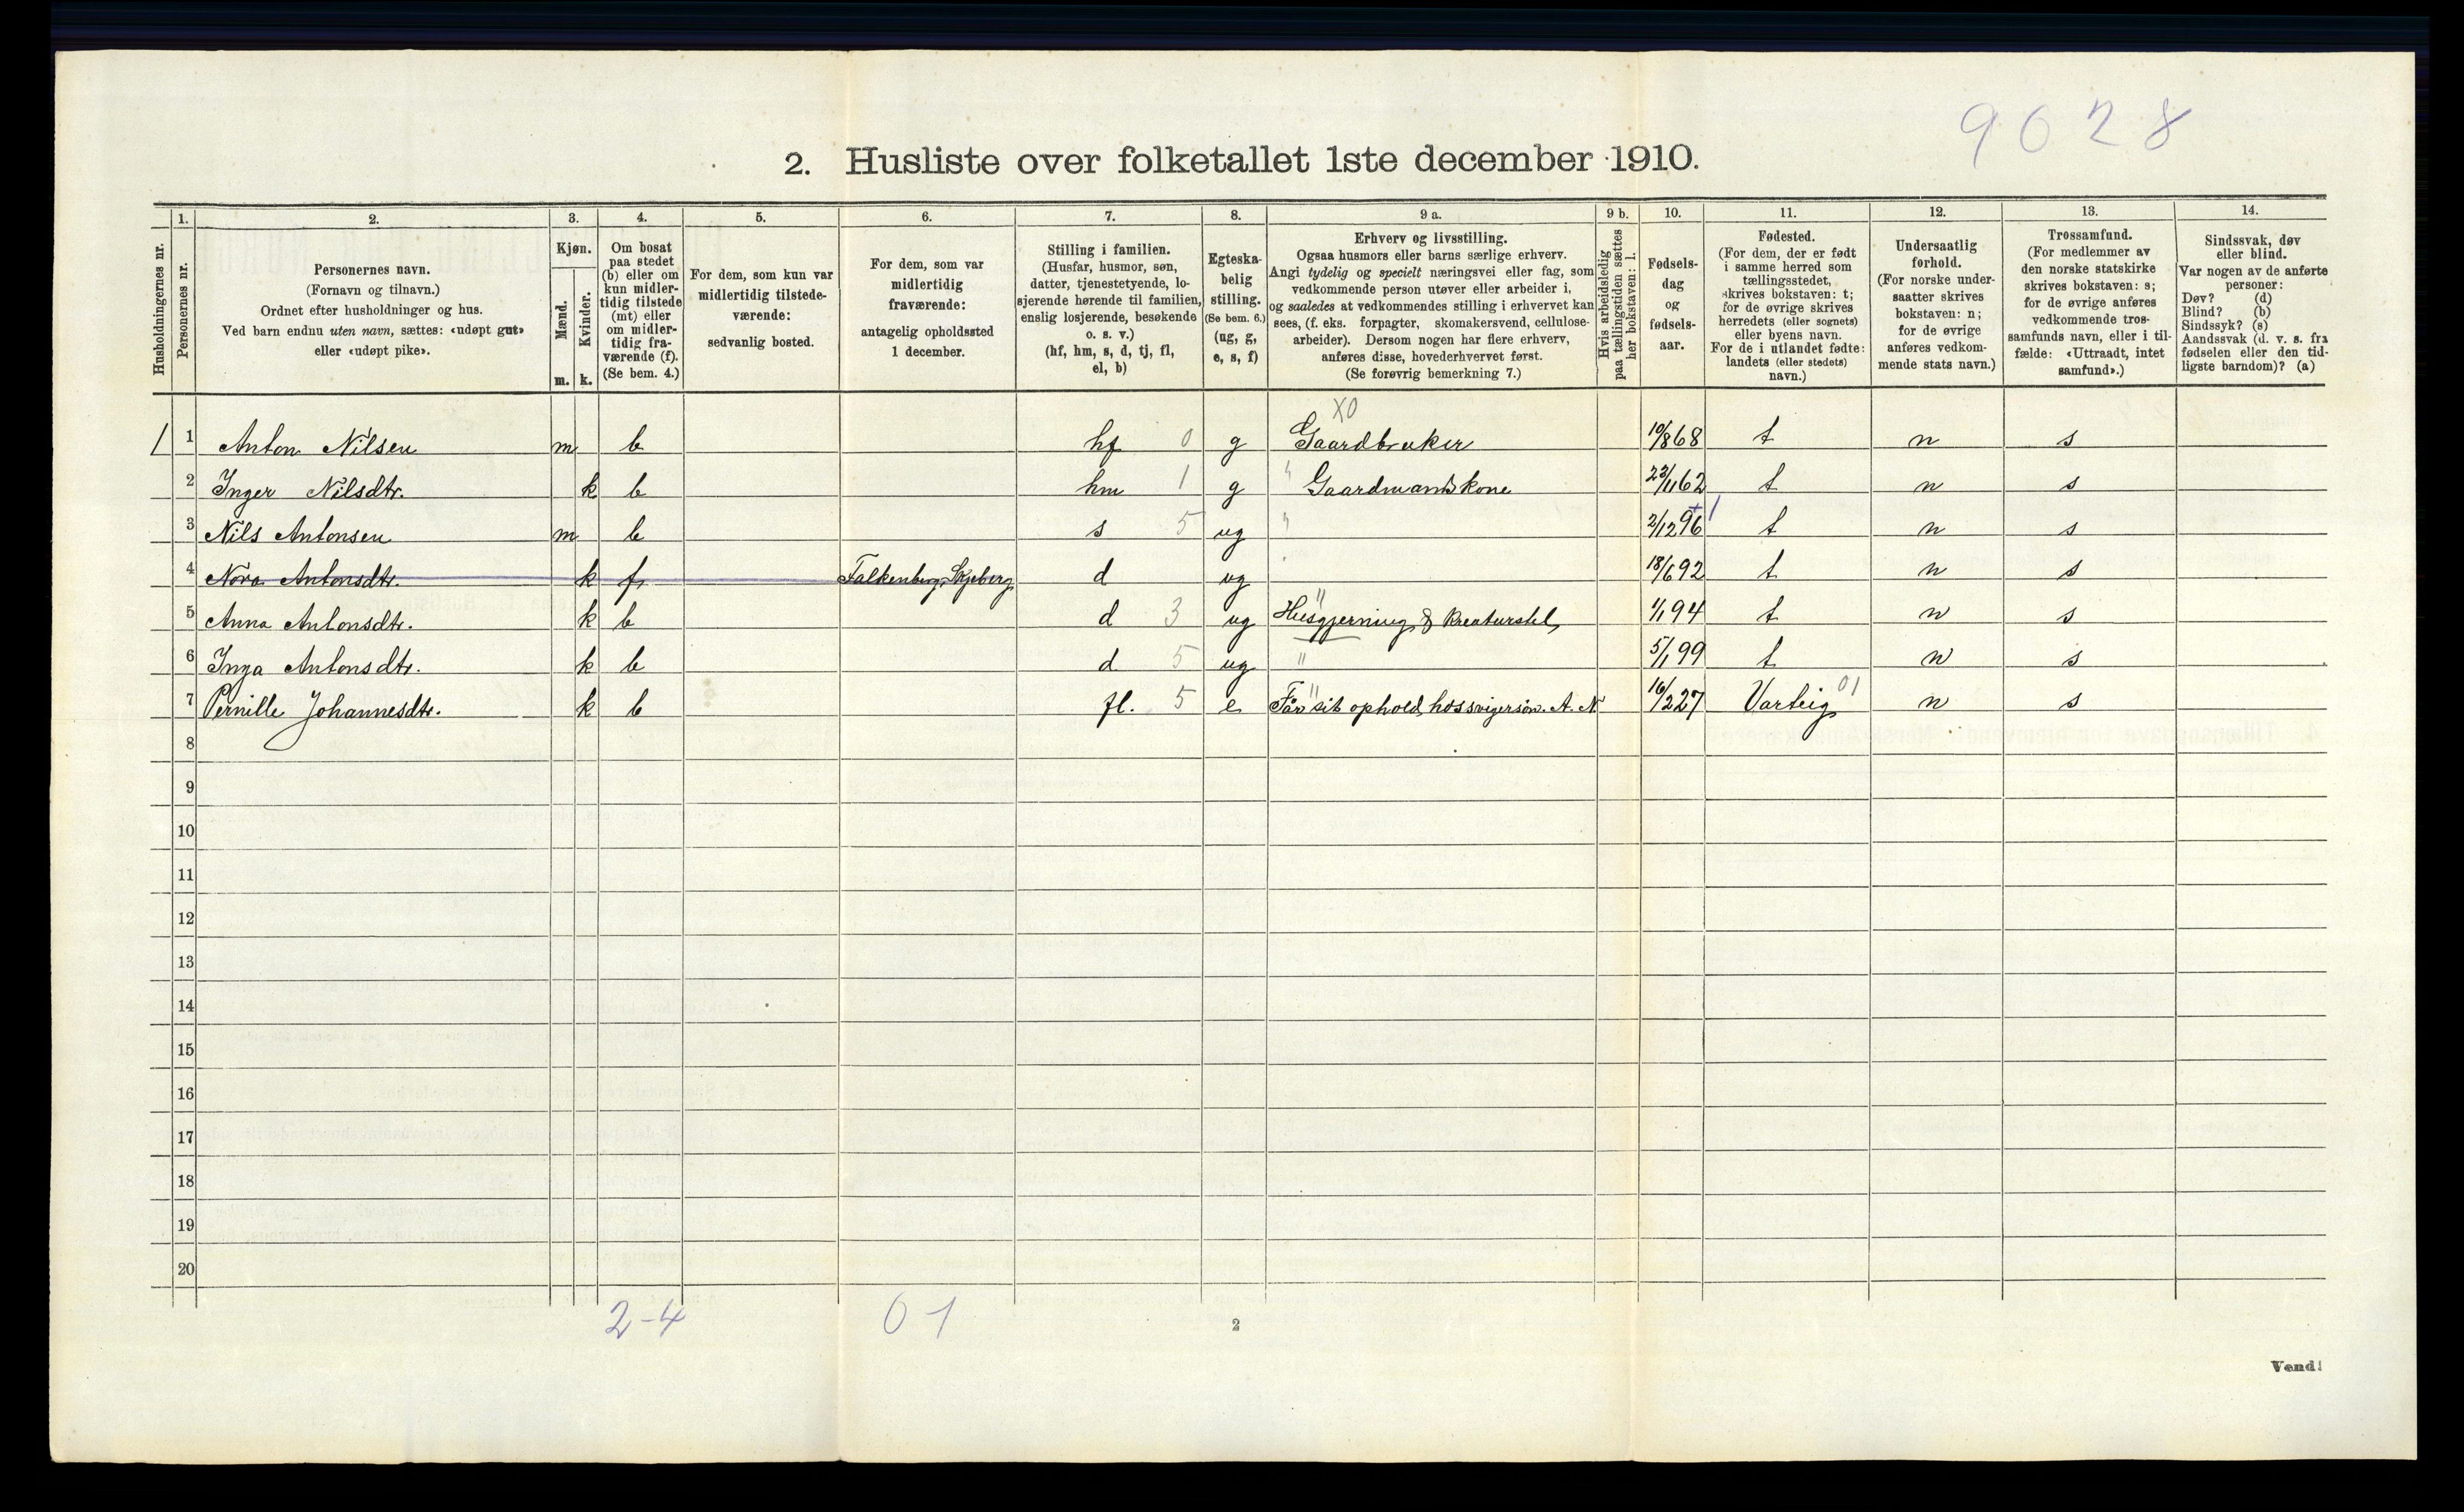 9028
2. Husliste over folketallet 1ste december 1910.
Husholdningernes nr.
1.
Personernes nr.
2.
Personernes navn.
(Fornavn og tilnavn.)
Ordnet efter husholdninger og hus.
Ved barn endnu uten navn, sættes: «udøpt gut»
eller «udøpt pike».
3.
Kjøn.
Mænd.
m.
Kvinder.
k.
4.
Om bosat
paa stedet
(b) eller om
kun midler-
tidig tilstede
(mt) eller
om midler-
tidig fra-
værende (f).
(Se bem. 4.)
5.
For dem, som kun var
midlertidig tilstede-
værende:
sedvanlig bosted.
6.
For dem, som var
midlertidig
fraværende:
antagelig opholdssted
1 december.
7.
Stilling i familien.
(Husfar, husmor, søn,
datter, tjenestetyende, lo-
sjerende hørende til familien,
enslig losjerende, besøkende
o. s. v.)
(hf, hm, s, d, tj, fl,
el, b)
8.
Egteska-
belig
stilling.
(Se bem. 6.)
(ug, g,
e, s, f)
9 a.
Erhverv og livsstilling.
Ogsaa husmors eller barns særlige erhverv.
Angi tydelig og specielt næringsvei eller fag, som
vedkommende person utøver eller arbeider i,
og saaledes at vedkommendes stilling i erhvervet kan
sees, (f. eks. forpagter, skomakersvend, cellulose-
arbeider). Dersom nogen har flere erhverv,
anføres disse, hovederhvervet først.
(Se forøvrig bemerkning 7.)
9 b.
Hvis arbeidsledig
paa tællingstiden sættes
her bokstaven: l.
10.
Fødsels-
dag
og
fødsels-
aar.
11.
Fødested.
(For dem, der er født
i samme herred som
tællingsstedet,
skrives bokstaven: t;
for de øvrige skrives
herredets (eller sognets)
eller byens navn.
For de i utlandet fødte:
landets (eller stedets)
navn.)
12.
Undersaatlig
forhold.
(For norske under-
saatter skrives
bokstaven: n;
for de øvrige
anføres vedkom-
mende stats navn.)
13.
Trossamfund.
(For medlemmer av
den norske statskirke
skrives bokstaven: s;
for de øvrige anføres
vedkommende tros-
samfunds navn, eller i til-
fælde: «Uttraadt, intet
samfund».)
14.
Sindssvak, døv
eller blind.
Var nogen av de anførte
personer:
Døv? (d)
Blind? (b)
Sindssyk? (s)
Aandssvak (d. v. s. fra
fødselen eller den tid-
ligste barndom)? (a)
X0
1 1 Anton Nilsen m b hf 0 g Gaardbruker 10/8 68 t n s
2 Inger Nilsdtr. k b hm 1 g " Gaardmandskone 23/11 62 t n s
3 Nils Antonsen m b s 5 ug " 2/12 96 1 t n s
4 Nora Antonsdtr. k f Falkenberg, Skjeberg d ug " 18/6 92 t n s
5 Anna Antonsdtr. k b d 3 ug Husgjerning & kreaturstel 1/1 94 t n s
6 Inga Antonsdtr. k b d 5 ug " 5/1 99 t n s
7 Pernille Johannesdtr. k b fl. 5 e Får sit ophold hos svigersøn. A. N 16/2 27 Varteig 01 n s
8
9
10
11
12
13
14
15
16
17
18
19
20
2-4 01
2
Vend!